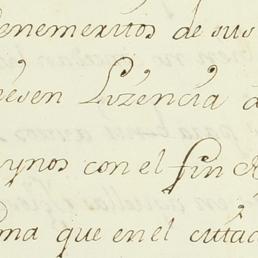 enemeritos de sus
esen Lizencia
ynos con el fin
ma que en el cittad